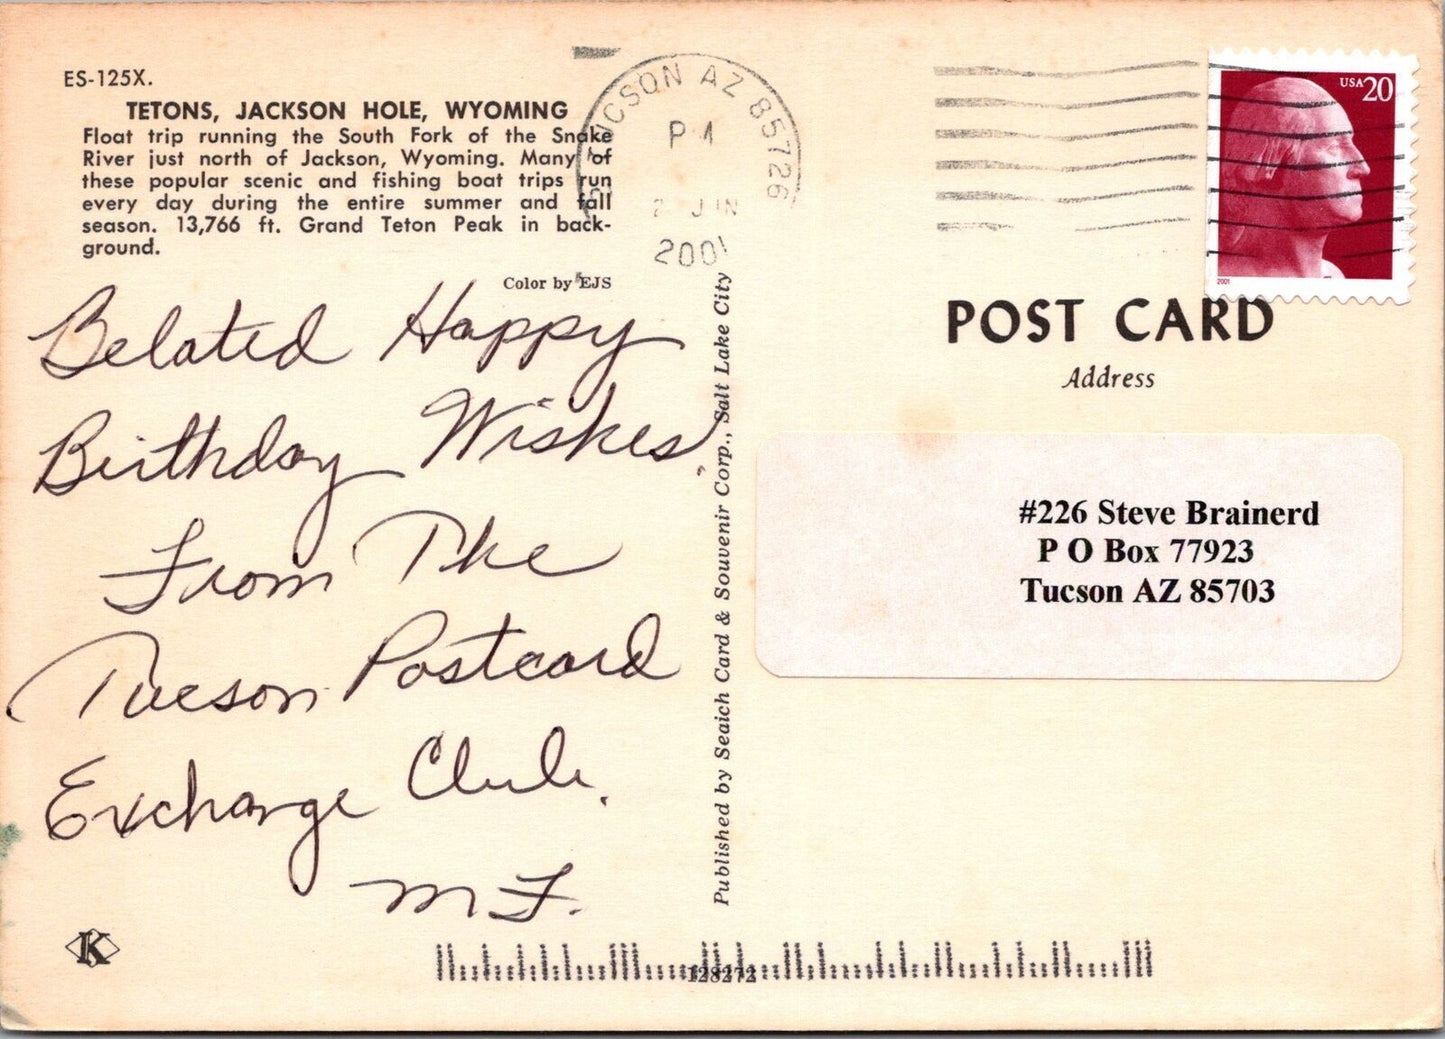 ES-125X.
TETONS, JACKSON HOLE, WYOMING
Float trip running the South Fork of the Snake
River just north of Jackson, Wyoming. Many of
these popular scenic and fishing boat trips run
every day during the entire summer and fall
season. 13,766 ft. Grand Teton Peak in back-
ground.
Color by EJS
Belated Happy
Birthday Wishes
From The
Tucson Postcard
Exchange Club.
M F.
K
Published by Seaich Card & Souvenir Corp., Salt Lake City
TUCSON AZ 85726
PM
JUN
2001
USA 20
2001
POST CARD
Address
#226 Steve Brainerd
P O Box 77923
Tucson AZ 85703
128272